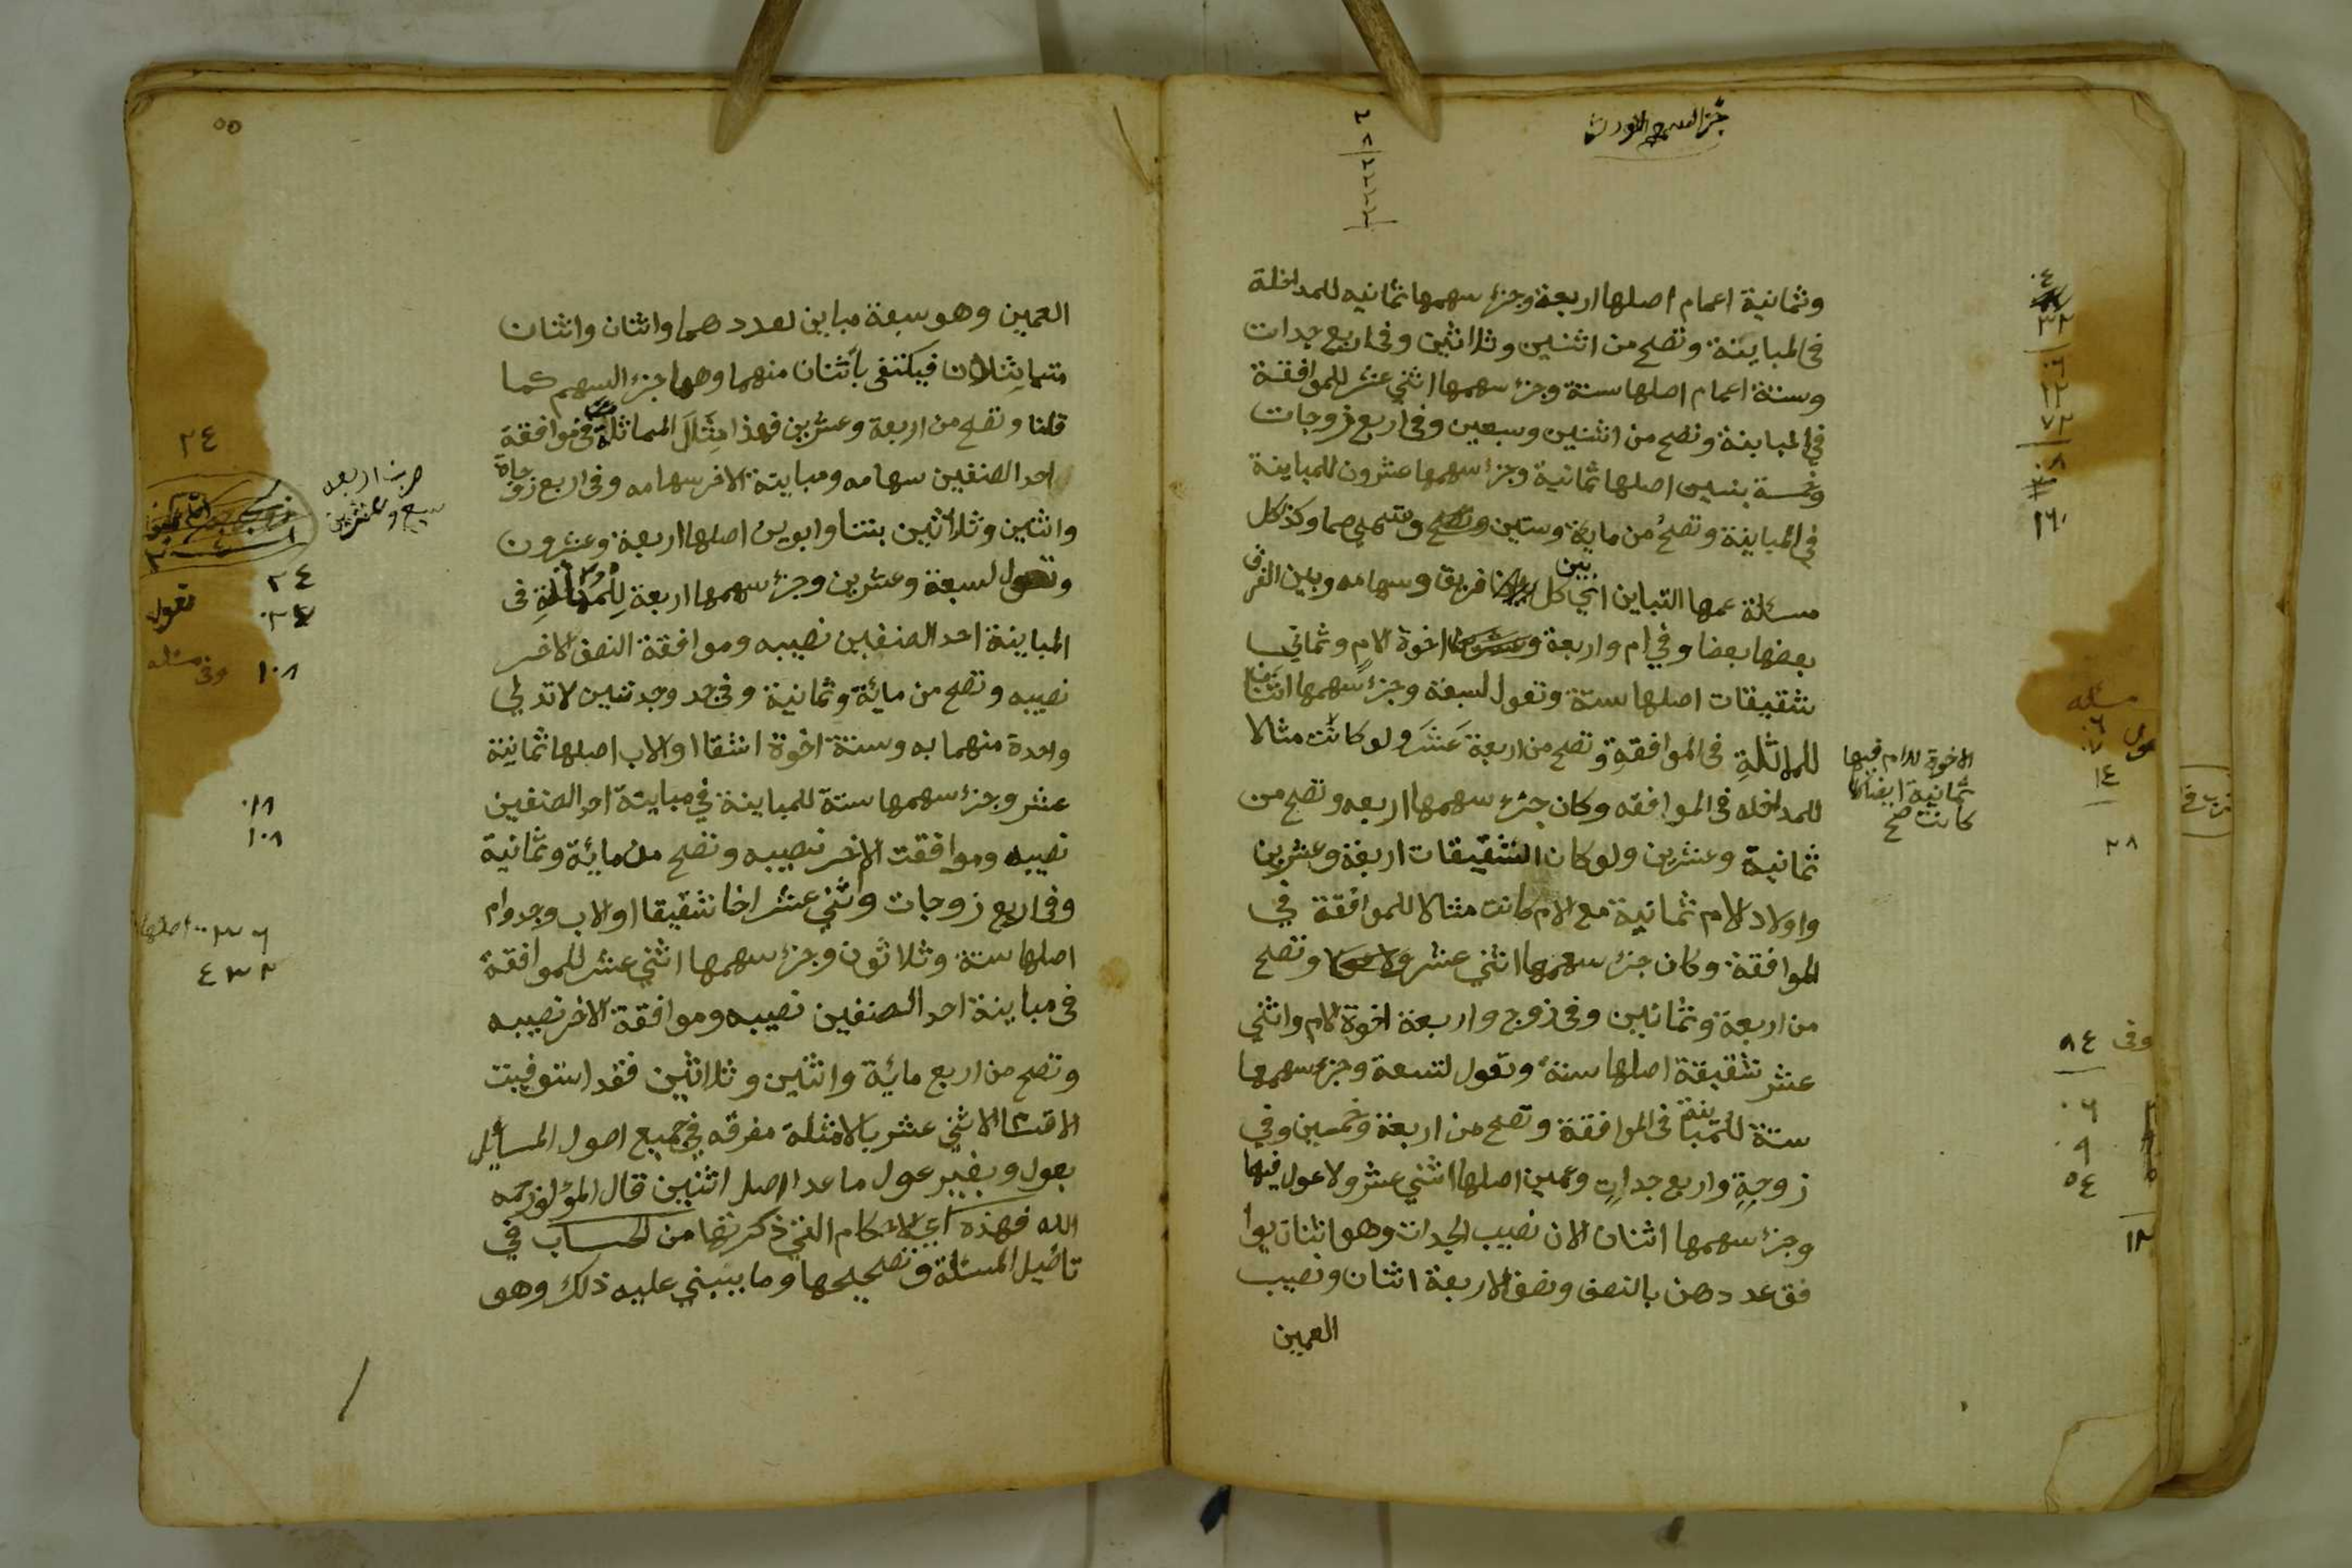 وثمانية اعمام اصلها اربعة وجزء سهمها ثمانيه للمداخلة
في المباينة وتصح من اثنين وثلاثين وفي اربع جدات
وستة اعمام اصلها ستة وجزء سهمها اثني عشر للموافقة
في المباينة وتصح من اثنين وسبعين وفي اربع زوجات
وخمسة بنين اصلها ثمانية وجزء سهمها عشرون للمباينة
في المباينة وتصح من ماية وستين وتسمي صما وكذا كل
مسئلة عمها التباين اي بين كل فريق وسهامه وبين الفرق
بعضها بعضا وفي ام واربعة اخوة لام وثماني
شقيقات اصلها ستة وتعول لسبعة وجزء سهمها اثنان
للماثلة في الموافقة وتصح من اربعة عشر ولو كانت مثالا
للمداخله في الموافقه وكان جزء سهمها اربعه وتصح من
ثمانية وعشرين ولو كان الشقيقات اربعة وعشرين
واولاد لام ثمانية مع الام كانت مثالا للموافقة في
الموافقة وكان جزء سهمها اثني عشر وتصح
من اربعة وثمانين وفي زوج واربعة اخوة لام واثني
عشر شقيقة اصلها ستة وتعول لتسعة وجزء سهمها
ستة للمباينة في الموافقة وتصح من اربعة وخمسين وفي
زوجة واربع جدات وعمين اصلها اثني عشر ولا عول فيها
وجزء سهمها اثنان لان نصيب الجدات وهو اثنان يوا
فق عددهن بالنصف ونصف الاربعة اثنان ونصيب
العمين
الاخوة للام فيها
ثمانية ايضا
كانت صح
٣٢
٧٢
١٦٠
مسئله
١٤
٢٨
٨٤
٠٦
٠٩
٥٤
٥٥
العمين وهو سبعة مباين لعددهما واثنان واثنان
متماثلان فيكتفى بأثنان منهما وهما جزء السهم كما
قلنا وتصح من اربعة وعشرين فهذا مثل المماثلة في موافقة
احد الصنفين سهامه ومباينة الاخر سهامه وفي اربع زوجاة
واثنين وثلاثين بنتا وابوين اصلها اربعة وعشرون
وتعول لسبعة وعشرين وجزء سهمها اربعة للمماثلة في
المباينة احد الصنفين نصيبه وموافقة الصنف الاخر
نصيبه وتصح من مائة وثمانية وفي جد وجدتين لا تدلي
واحدة منهما به وستة اخوة اشقا او لاب اصلها ثمانية
عشر وجزء سهمها ستة للمباينة في مباينة احد الصنفين
نصيبه وموافقت الاخر نصيبه وتصح من مائة وثمانية
وفي اربع زوجات واثني عشر اخا شقيقا او لاب وجد وام
اصلها ستة وثلاثون وجزء سهمها اثني عشر للموافقة
في مباينة احد الصنفين نصيبه وموافقة الاخر نصيبه
وتصح من اربع مائة واثنين وثلاثين فقد استوفيت
الاقسام الاثني عشر بالامثلة مفرقه في جميع اصول المسايل
بعول وبغير عول ما عدا اصل اثنين قال المؤلف رحمه
الله فهذه اي الاحكام التي ذكرتها من الحساب في
تاصيل المسئلة وتصحيحها وما ينبني عليه ذلك وهو
٢٤
ضربت اربعه
سبع وعشرين
٢٤
تعول
١٠٨
١٠٨
اصلها
٤٣٢